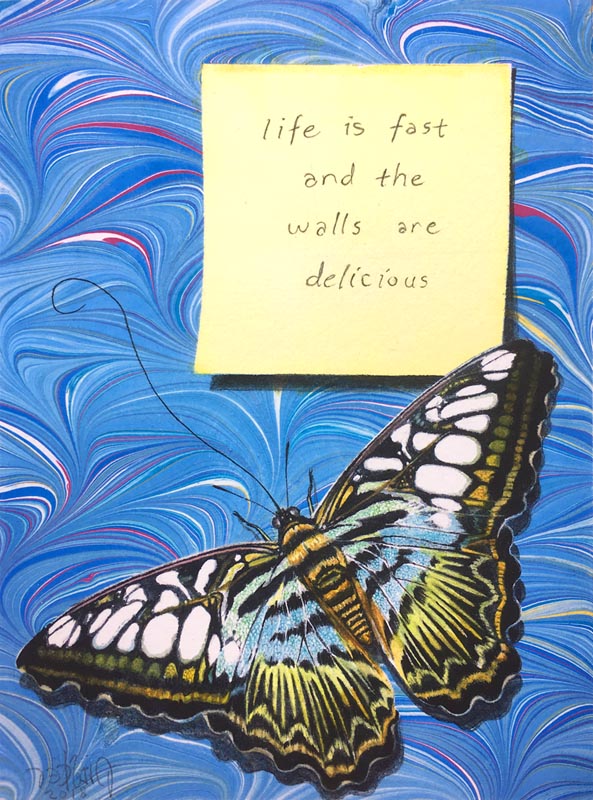 life is fast
and the
walls are
delicious